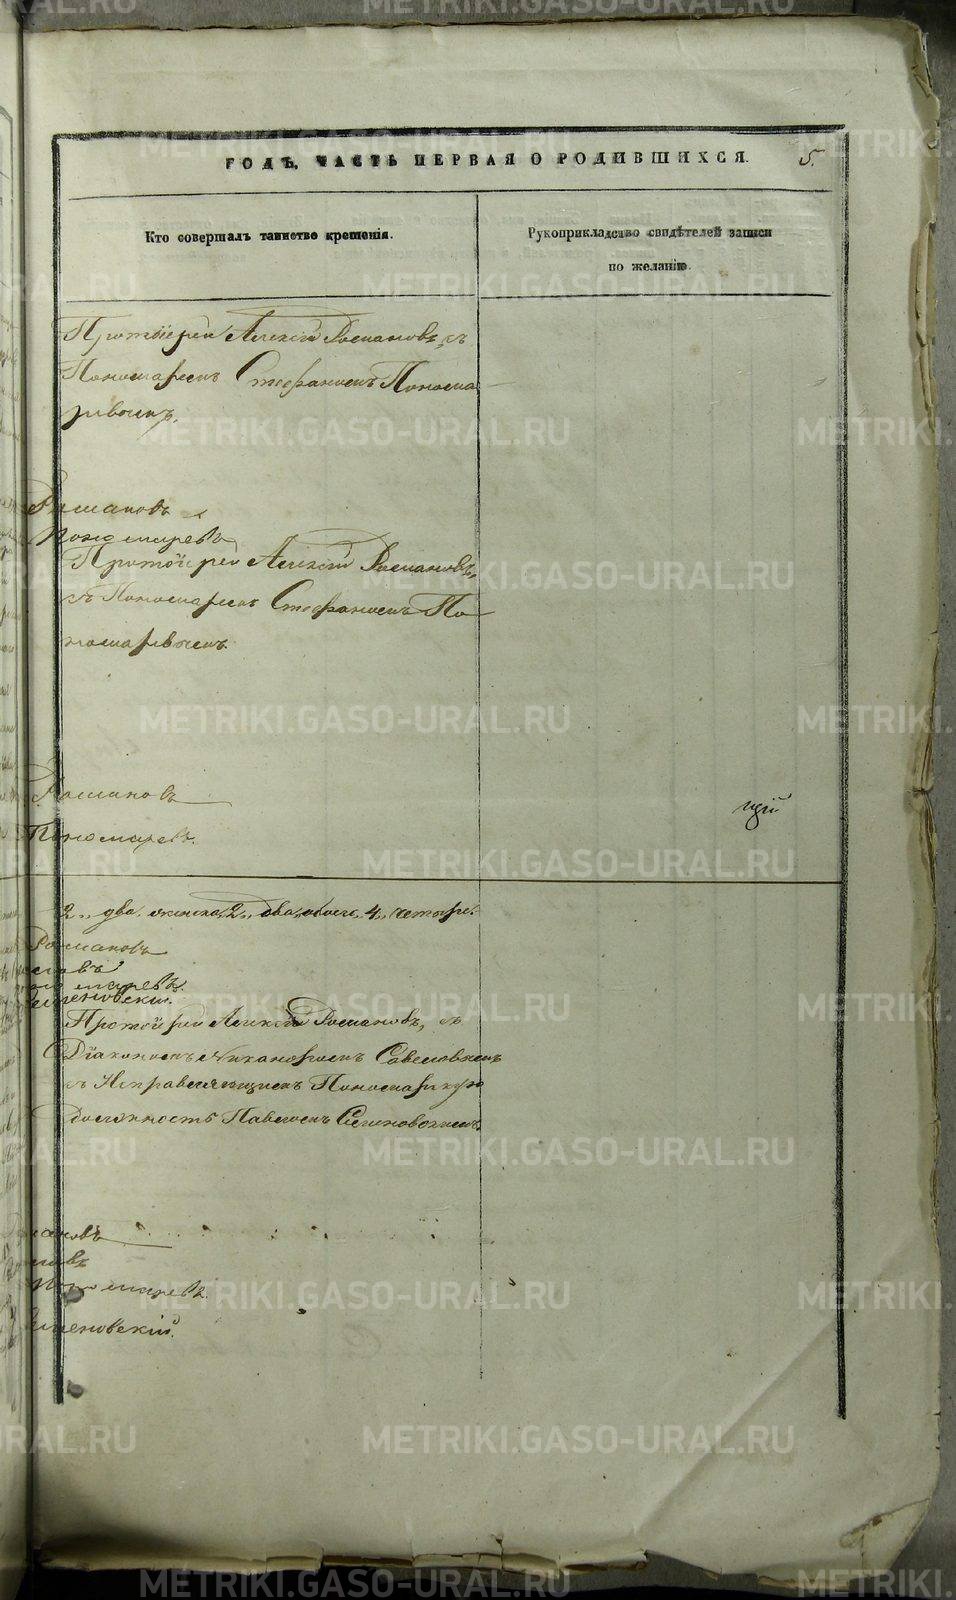 ГОДЪ, ЧАСТЬ ПЕРВАЯ О РОДИВШИХСЯ.
5.
Кто совершалъ таинство крещенія.
Рукоприкладство свидѣтелей записи
по желанію.
Протоіерей Алексій Романовъ, съ
Пономаремъ Стефаномъ Понома-
ревымъ.
Романовъ
Пономаревъ
Протоіерей Алексій Романовъ,
съ Пономаремъ Стефаномъ По-
номаревымъ.
Романовъ
Пономаревъ.
2, два, женска 2, два, обоего 4, четыре.
Романовъ
Протоіерей Алексій Романовъ, съ
Діакономъ Никаноромъ
и Исправляющимъ Пономарскую
должность Павломъ Семеновскимъ
Пономаревъ.
METRIKI.GASO-URAL.RU